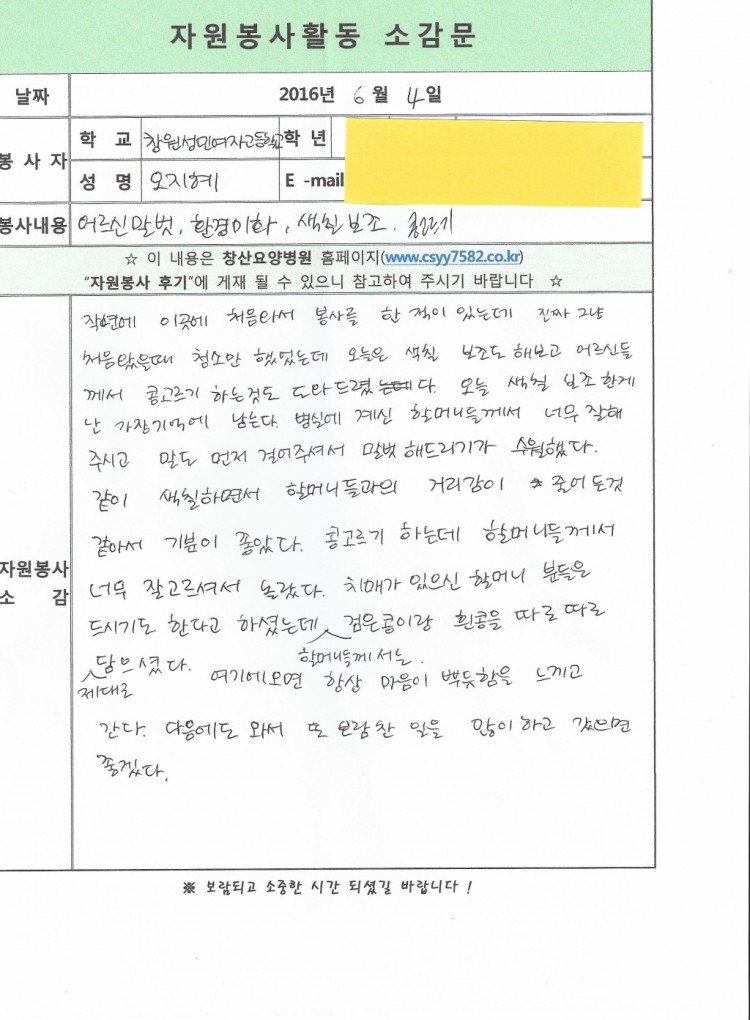 자원봉사활동 소감문
날짜 2016년 6월 4일
봉사자 학 교 창원성민여자고등학교 학 년
성 명 오지혜 E -mail
봉사내용 어르신말벗, 환경미화, 색칠보조, 콩고르기
☆ 이 내용은 창산요양병원 홈페이지(www.csyy7582.co.kr)
"자원봉사 후기"에 게재 될 수 있으니 참고하여 주시기 바랍니다 ☆
자원봉사 소 감
작년에 이곳에 처음와서 봉사를 한 적이 있는데 진짜 그냥
처음왔을때 청소만 했었는데 오늘은 색칠 보조도 해보고 어르신들
께서 콩고르기 하는것도 도와드렸다. 오늘 색칠 보조한게
난 가장기억에 남는다. 병실에 계신 할머니들께서 너무 잘해
주시고 말도 먼저 걸어주셔서 말벗 해드리기가 수월했다.
같이 색칠하면서 할머니들과의 거리감이 줄어 든것
같아서 기분이 좋았다. 콩고르기 하는데 할머니들께서
너무 잘고르셔서 놀랐다. 치매가 있으신 할머니 분들은
드시기도 한다고 하셨는데 할머니들께서는 검은콩이랑 흰콩을 따로 따로
제대로 담으셨다. 여기에오면 항상 마음이 뿌듯함을 느끼고
간다. 다음에도 와서 또 보람찬 일을 많이 하고 갔으면
좋겠다.
※ 보람되고 소중한 시간 되셨길 바랍니다 !